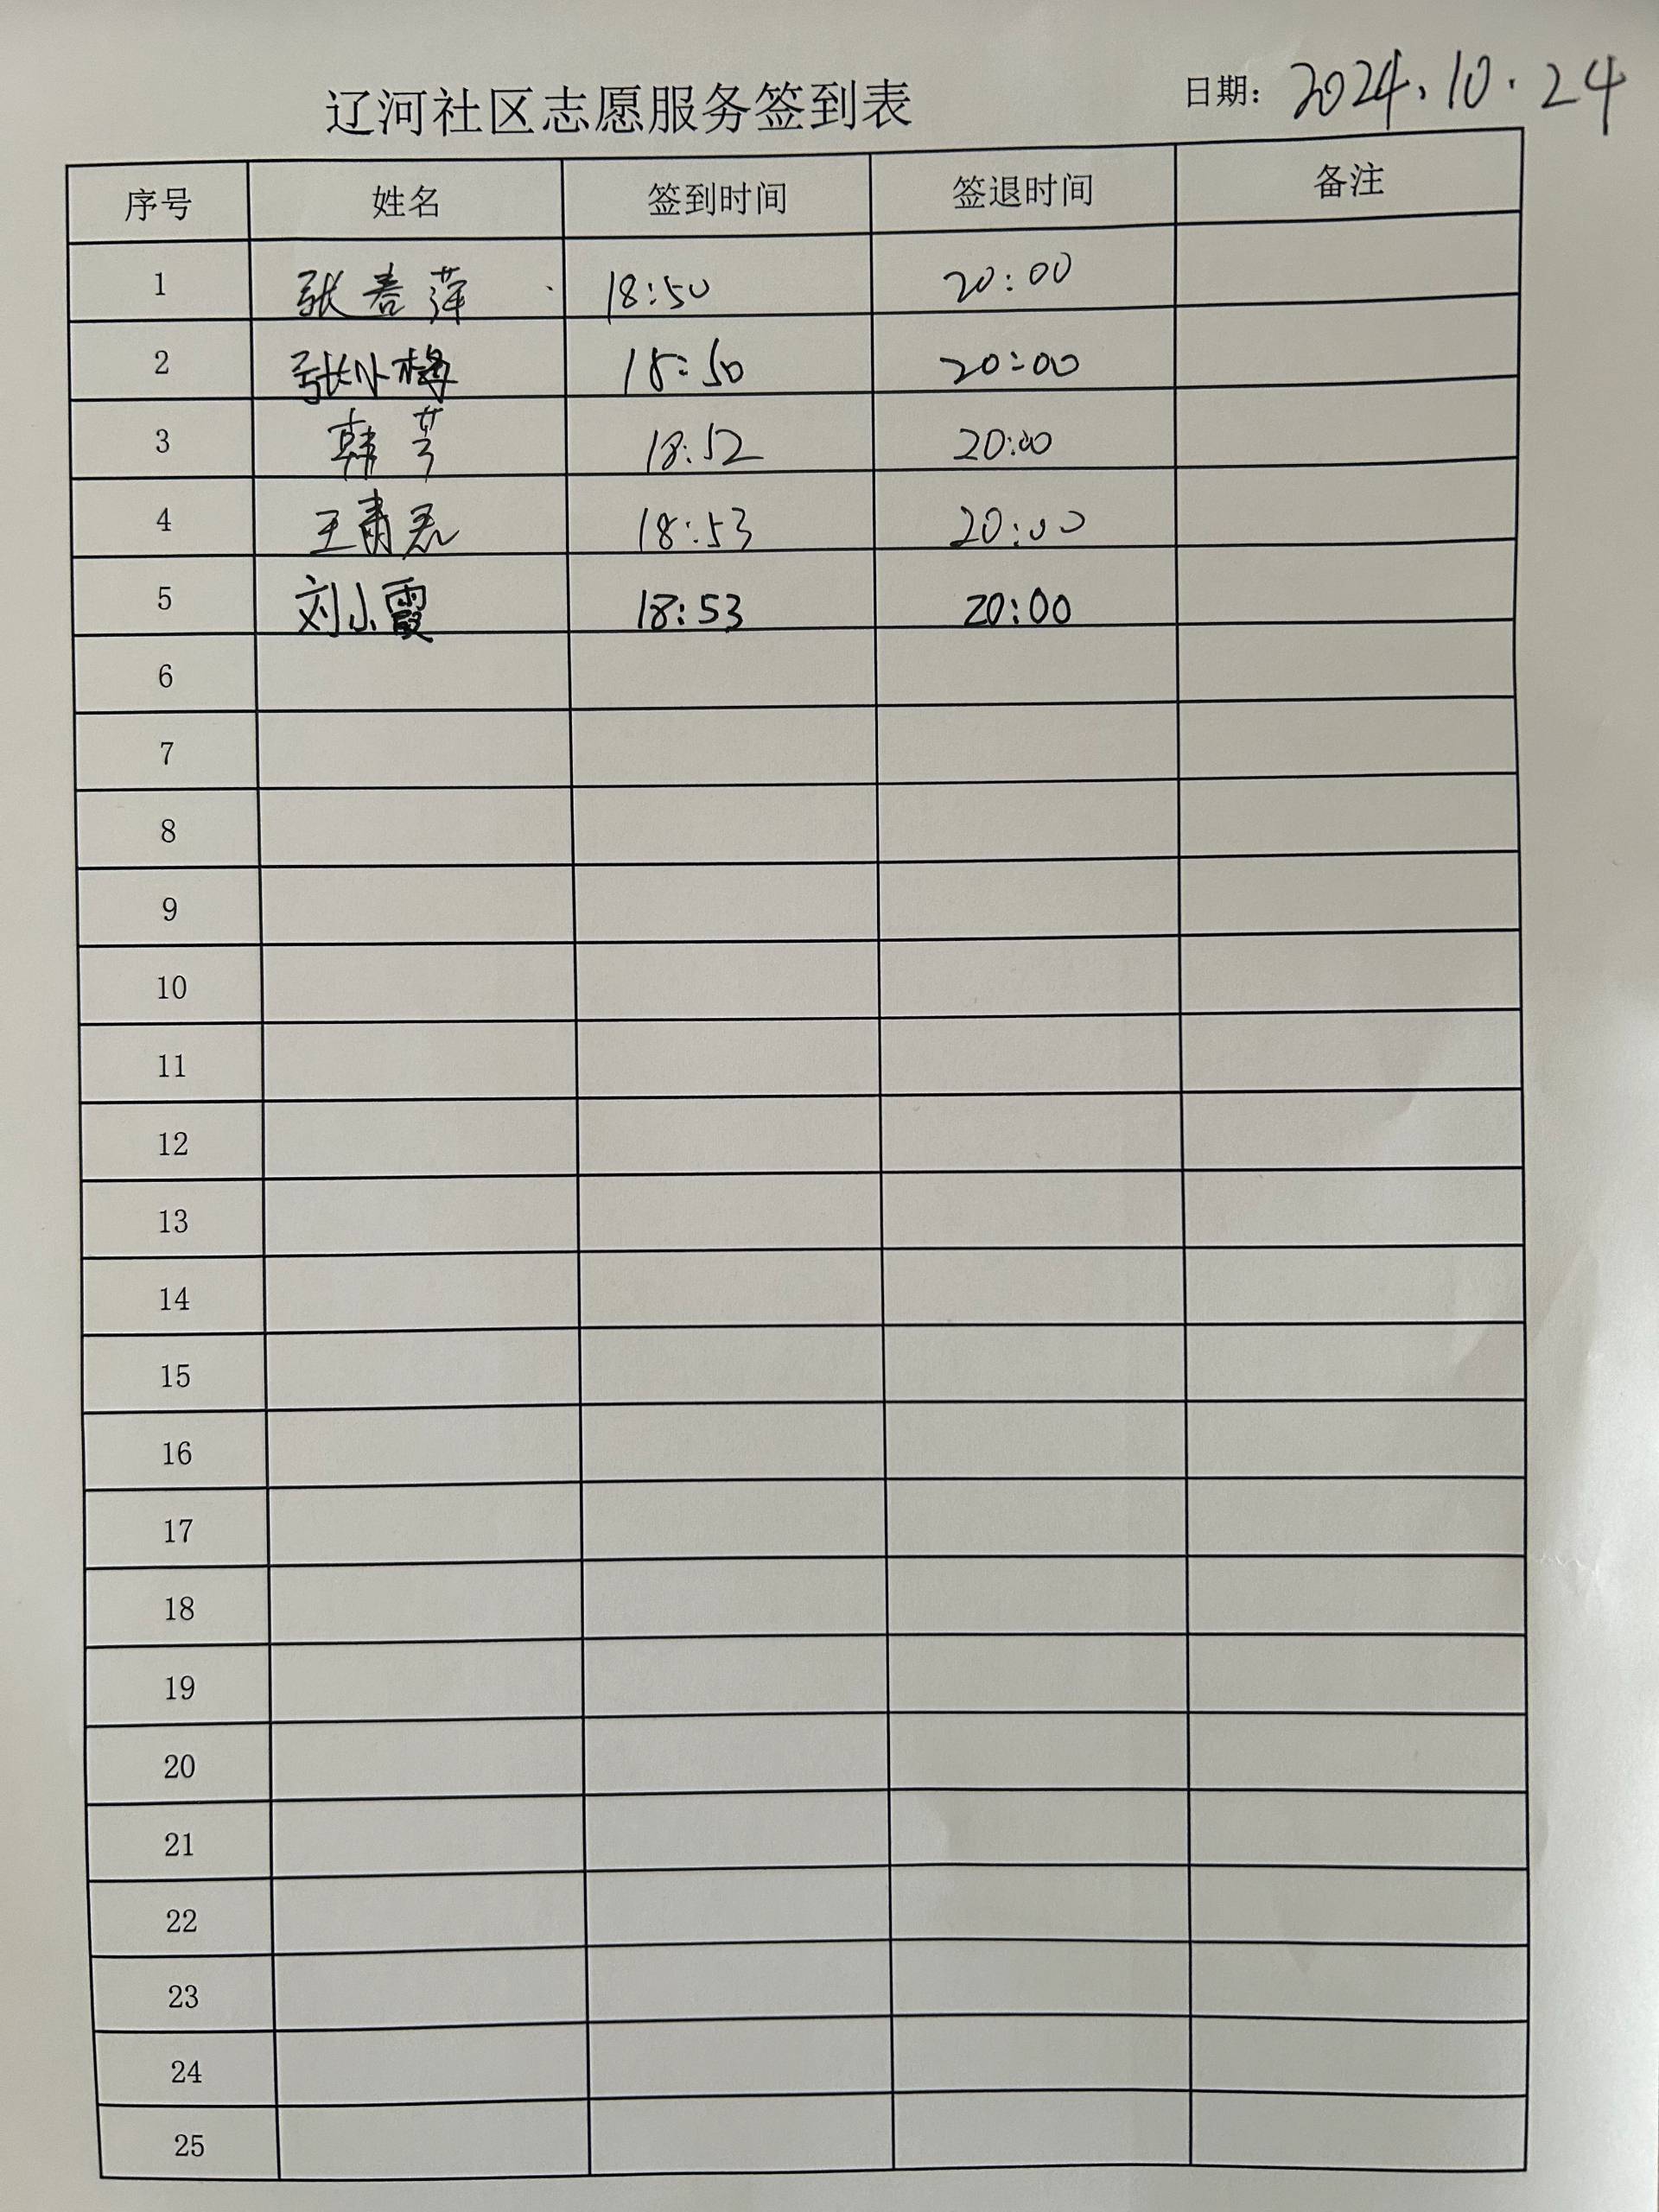 辽河社区志愿服务签到表 日期: 2024.10.24
序号 姓名 签到时间 签退时间 备注
1 张春萍 18:50 20:00
2 张小梅 18:50 20:00
3 韩芳 18:52 20:00
4 王青 18:53 20:00
5 刘小霞 18:53 20:00
6
7
8
9
10
11
12
13
14
15
16
17
18
19
20
21
22
23
24
25